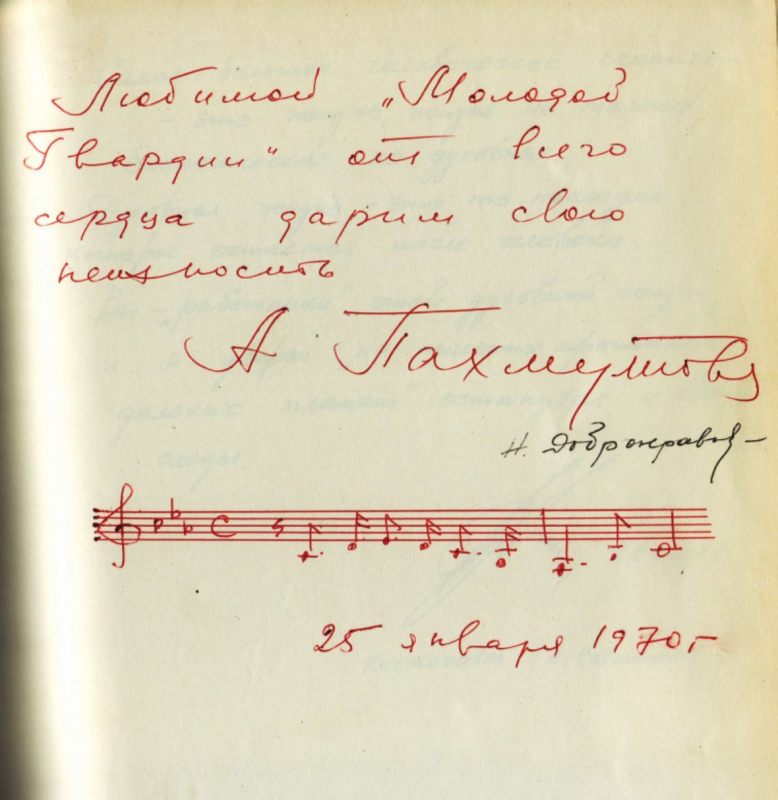 Любимой „Молодой
Гвардии“ от всего
сердца дарим свою
А Пахмутова
Н. Добронравов
25 января 1970 г